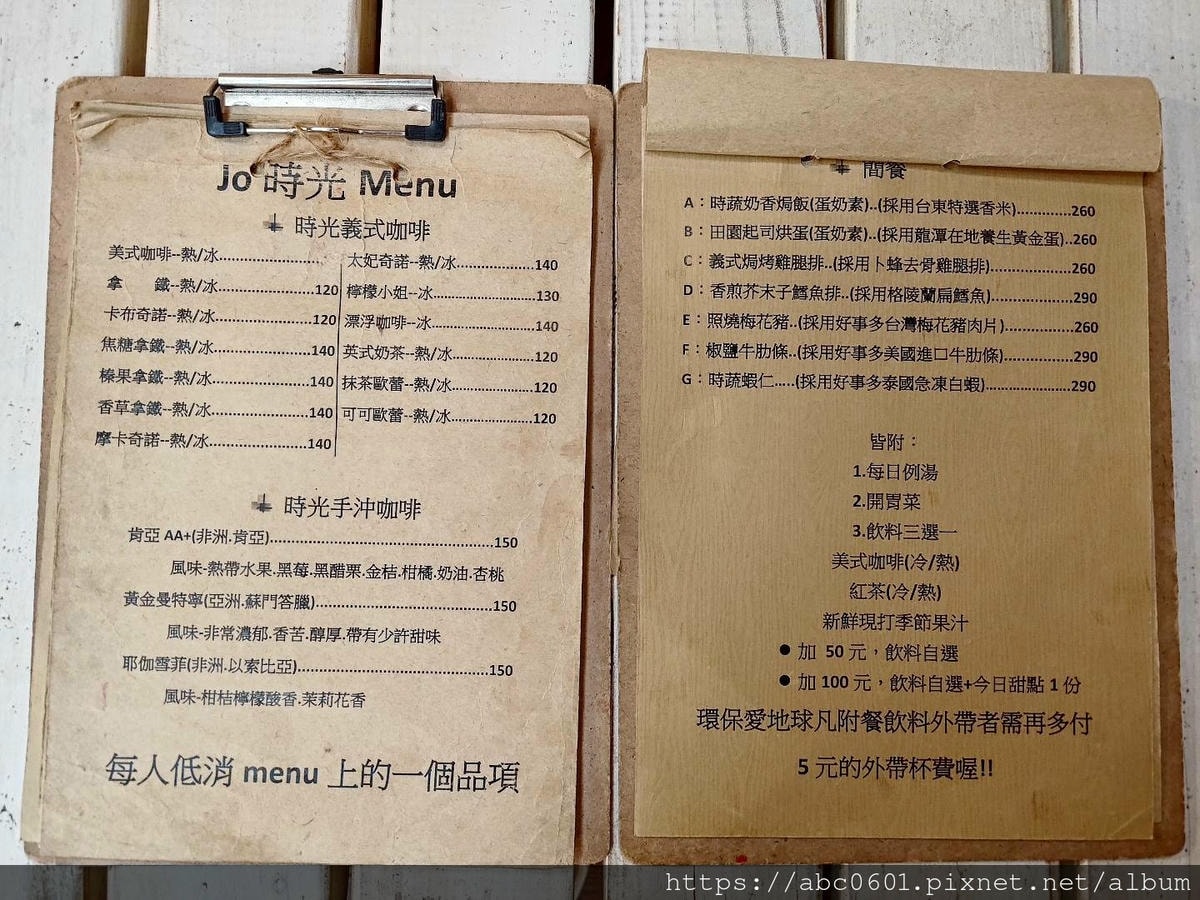 Jo 時光 Menu
時光義式咖啡
美式咖啡--熱/冰
拿 鐵--熱/冰..........120
卡布奇諾--熱/冰..........120
焦糖拿鐵--熱/冰..........140
榛果拿鐵--熱/冰..........140
香草拿鐵--熱/冰..........140
摩卡奇諾--熱/冰..........140
太妃奇諾--熱/冰..........140
檸檬小姐--冰..........130
漂浮咖啡--冰..........140
英式奶茶--熱/冰..........120
抹茶歐蕾--熱/冰..........120
可可歐蕾--熱/冰..........120
時光手沖咖啡
肯亞 AA+(非洲.肯亞)..........150
風味-熱帶水果.黑莓.黑醋栗.金桔.柑橘.奶油.杏桃
黃金曼特寧(亞洲.蘇門答臘)..........150
風味-非常濃郁.香苦.醇厚.帶有少許甜味
耶伽雪菲(非洲.以索比亞)..........150
風味-柑桔檸檬酸香.茉莉花香
每人低消 menu 上的一個品項
簡餐
A：時蔬奶香焗飯(蛋奶素)..(採用台東特選香米)..........260
B：田園起司烘蛋(蛋奶素)..(採用龍潭在地養生黃金蛋)..260
C：義式焗烤雞腿排..(採用卜蜂去骨雞腿排)..........260
D：香煎芥末子鱈魚排..(採用格陵蘭扁鱈魚)..........290
E：照燒梅花豬..(採用好事多台灣梅花豬肉片)..........260
F：椒鹽牛肋條..(採用好事多美國進口牛肋條)..........290
G：時蔬蝦仁.....(採用好事多泰國急凍白蝦)..........290
皆附：
1.每日例湯
2.開胃菜
3.飲料三選一
美式咖啡(冷/熱)
紅茶(冷/熱)
新鮮現打季節果汁
● 加 50 元，飲料自選
● 加 100 元，飲料自選+今日甜點 1 份
環保愛地球凡附餐飲料外帶者需再多付
5 元的外帶杯費喔!!
https://abc0601.pixnet.net/album